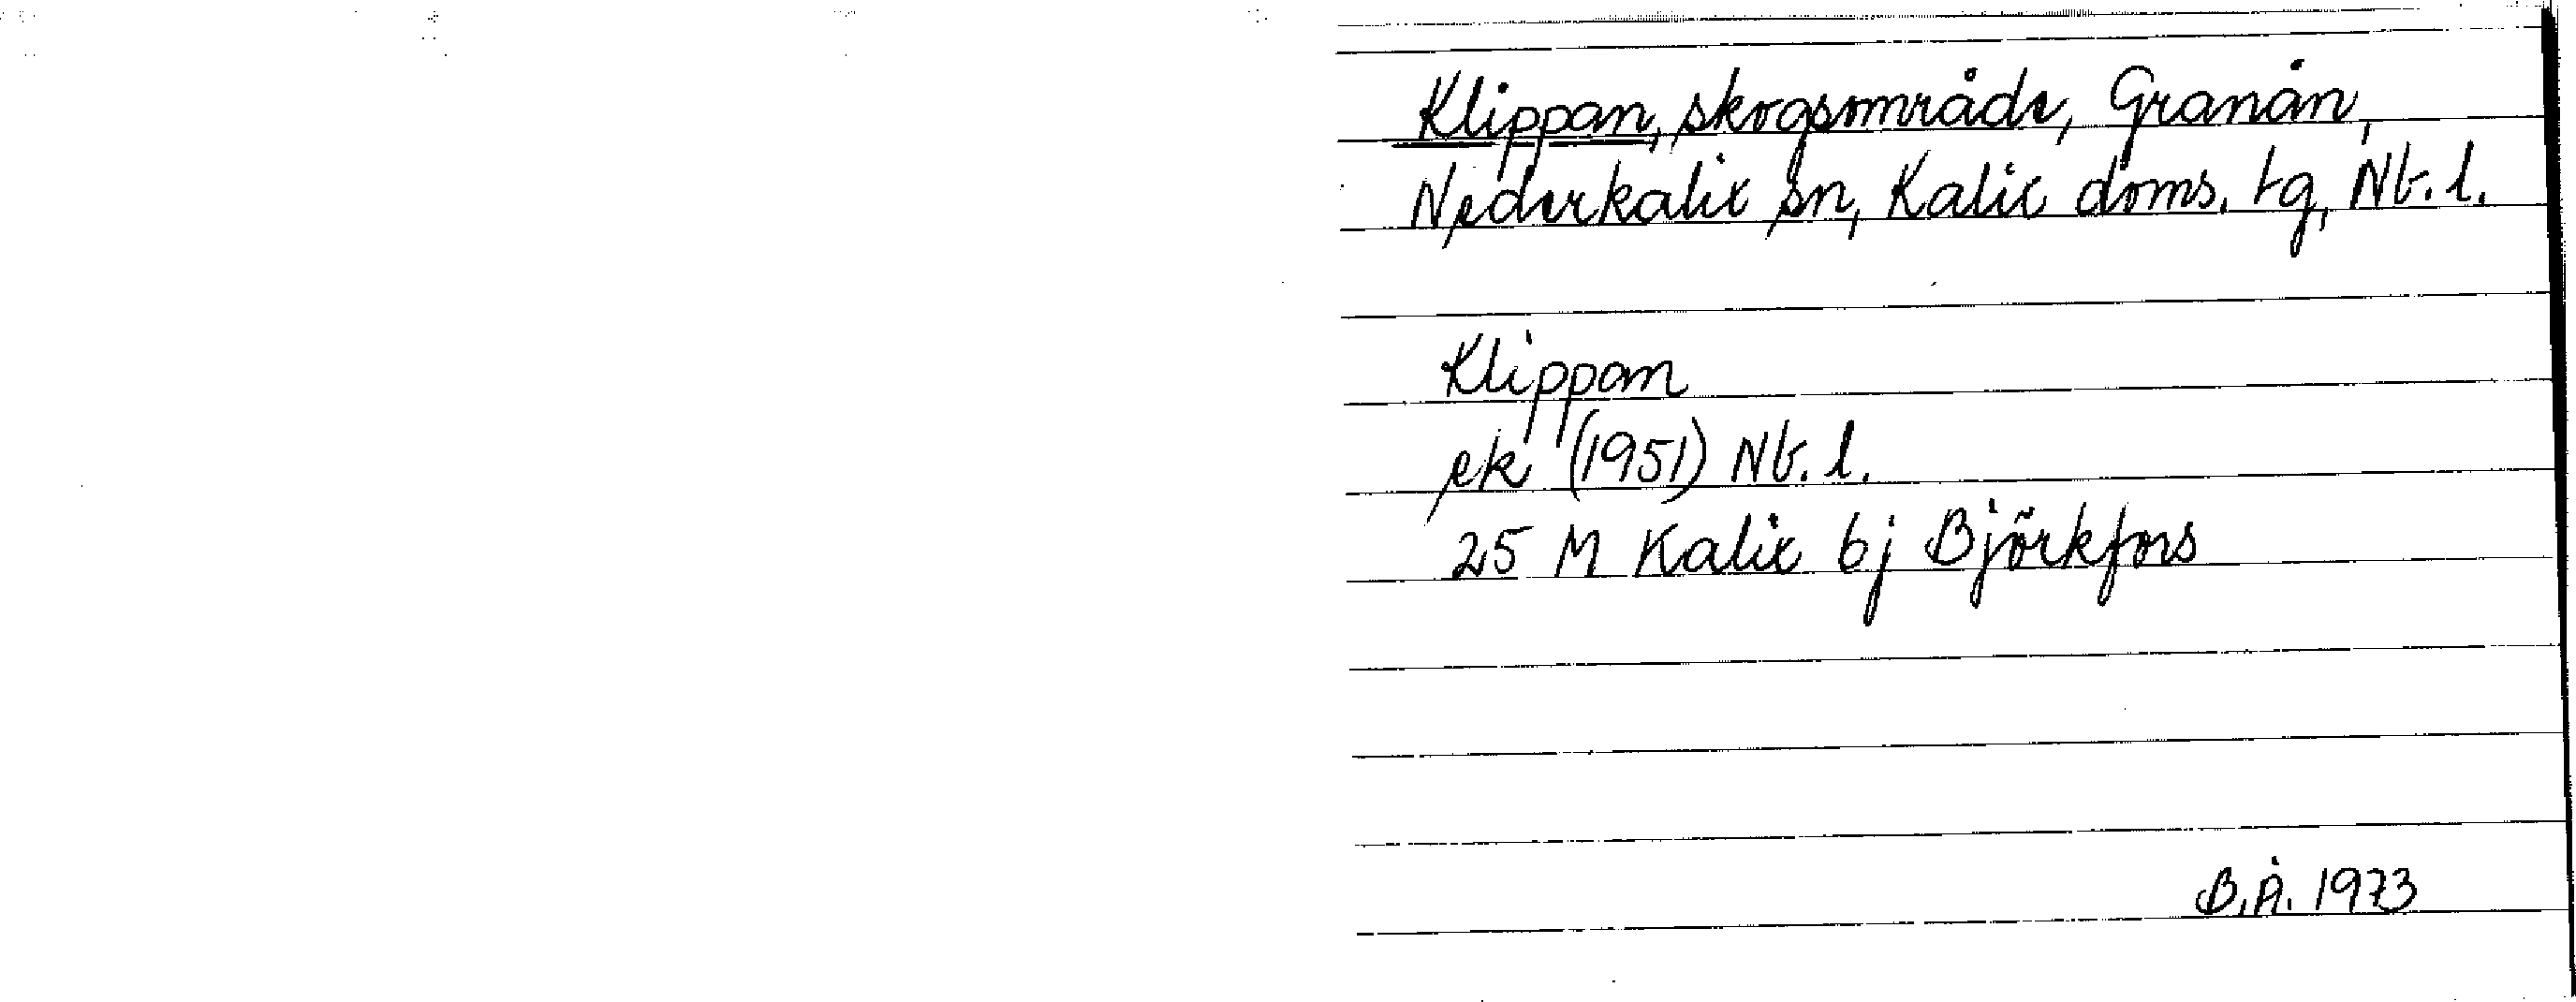 Klippan, skogsområde, Granån,
Nederkalix sn, Kalix doms. tg, Nb. l.
Klippan
ek (1951) Nb. l.
25 M Kalix 6j Björkfors
B.Å. 1973